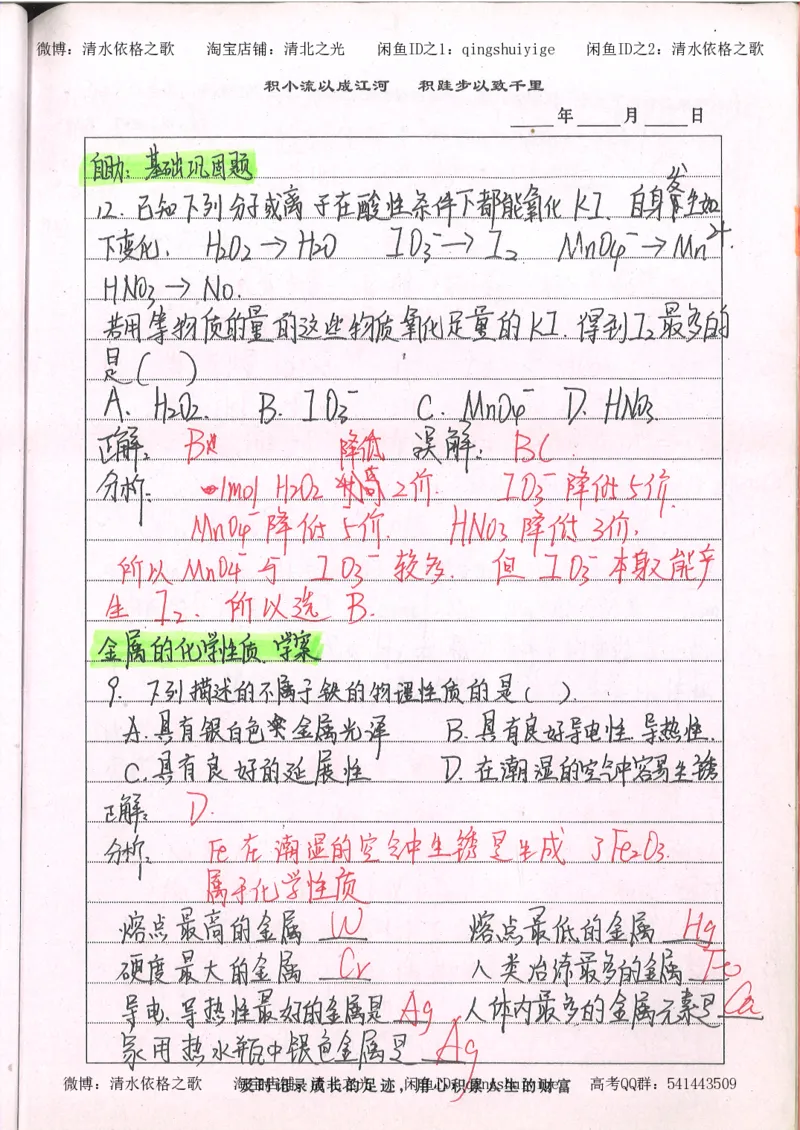 微博：清水依格之歌 淘宝店铺：清北之光 闲鱼ID之1：qingshuiyige 闲鱼ID之2：清水依格之歌
积小流以成江河 积跬步以致千里
____年____月____日
自助：基础巩固题
12. 已知下列分子或离子在酸性条件下都能氧化KI，自身发生如
下变化，H₂O₂→H₂O IO₃⁻→I₂ MnO₄⁻→Mn²⁺.
HNO₃→NO.
若用等物质的量的这些物质氧化足量的KI. 得到I₂最多的
是( )
A. H₂O₂. B. IO₃⁻ C. MnO₄⁻ D. HNO₃.
正解： B 误解： BC.
分析： 1mol H₂O₂ 降低 2价. IO₃⁻降低5价.
MnO₄⁻降低5价. HNO₃降低3价,
所以MnO₄⁻与IO₃⁻较多. 但IO₃⁻本身能产
生I₂. 所以选B.
金属的化学性质. 学案
9. 下列描述的不属于铁的物理性质的是( ).
A. 具有银白色金属光泽 B. 具有良好导电性. 导热性.
C. 具有良好的延展性 D. 在潮湿的空气中容易生锈
正解： D.
分析： Fe在潮湿的空气中生锈是生成了Fe₂O₃.
属于化学性质
熔点最高的金属 W 熔点最低的金属 Hg
硬度最大的金属 Cr 人类冶炼最多的金属 Fe
导电、导热性最好的金属是 Ag 人体内最多的金属元素是 Ca
家用热水瓶中银色金属是 Ag
及时记录成长的足迹，用心积累人生的财富
微博：清水依格之歌 淘宝店铺：清北之光 闲鱼ID：qingshuiyige 高考QQ群：541443509